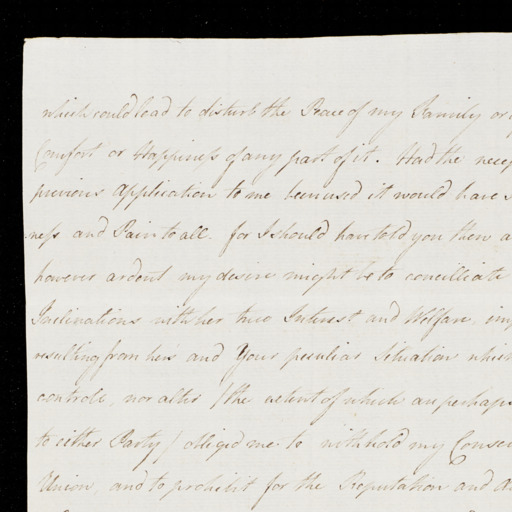 which could lead to disturb the Peace of my Family or
Comfort or Happiness of any part of it. Had the
previous Application to me been used it would have
ness and Pain to all. for I should have told you then
however ardent my desire might be to concilliate
Inclinations with her true Interest and Welfare,
resulting from hers and Your peculiar Situation which
controle, nor alter /the extent of which are perhaps
to either Party/ obliged me to withhold my
Union, and to prohibit for the Reputation and